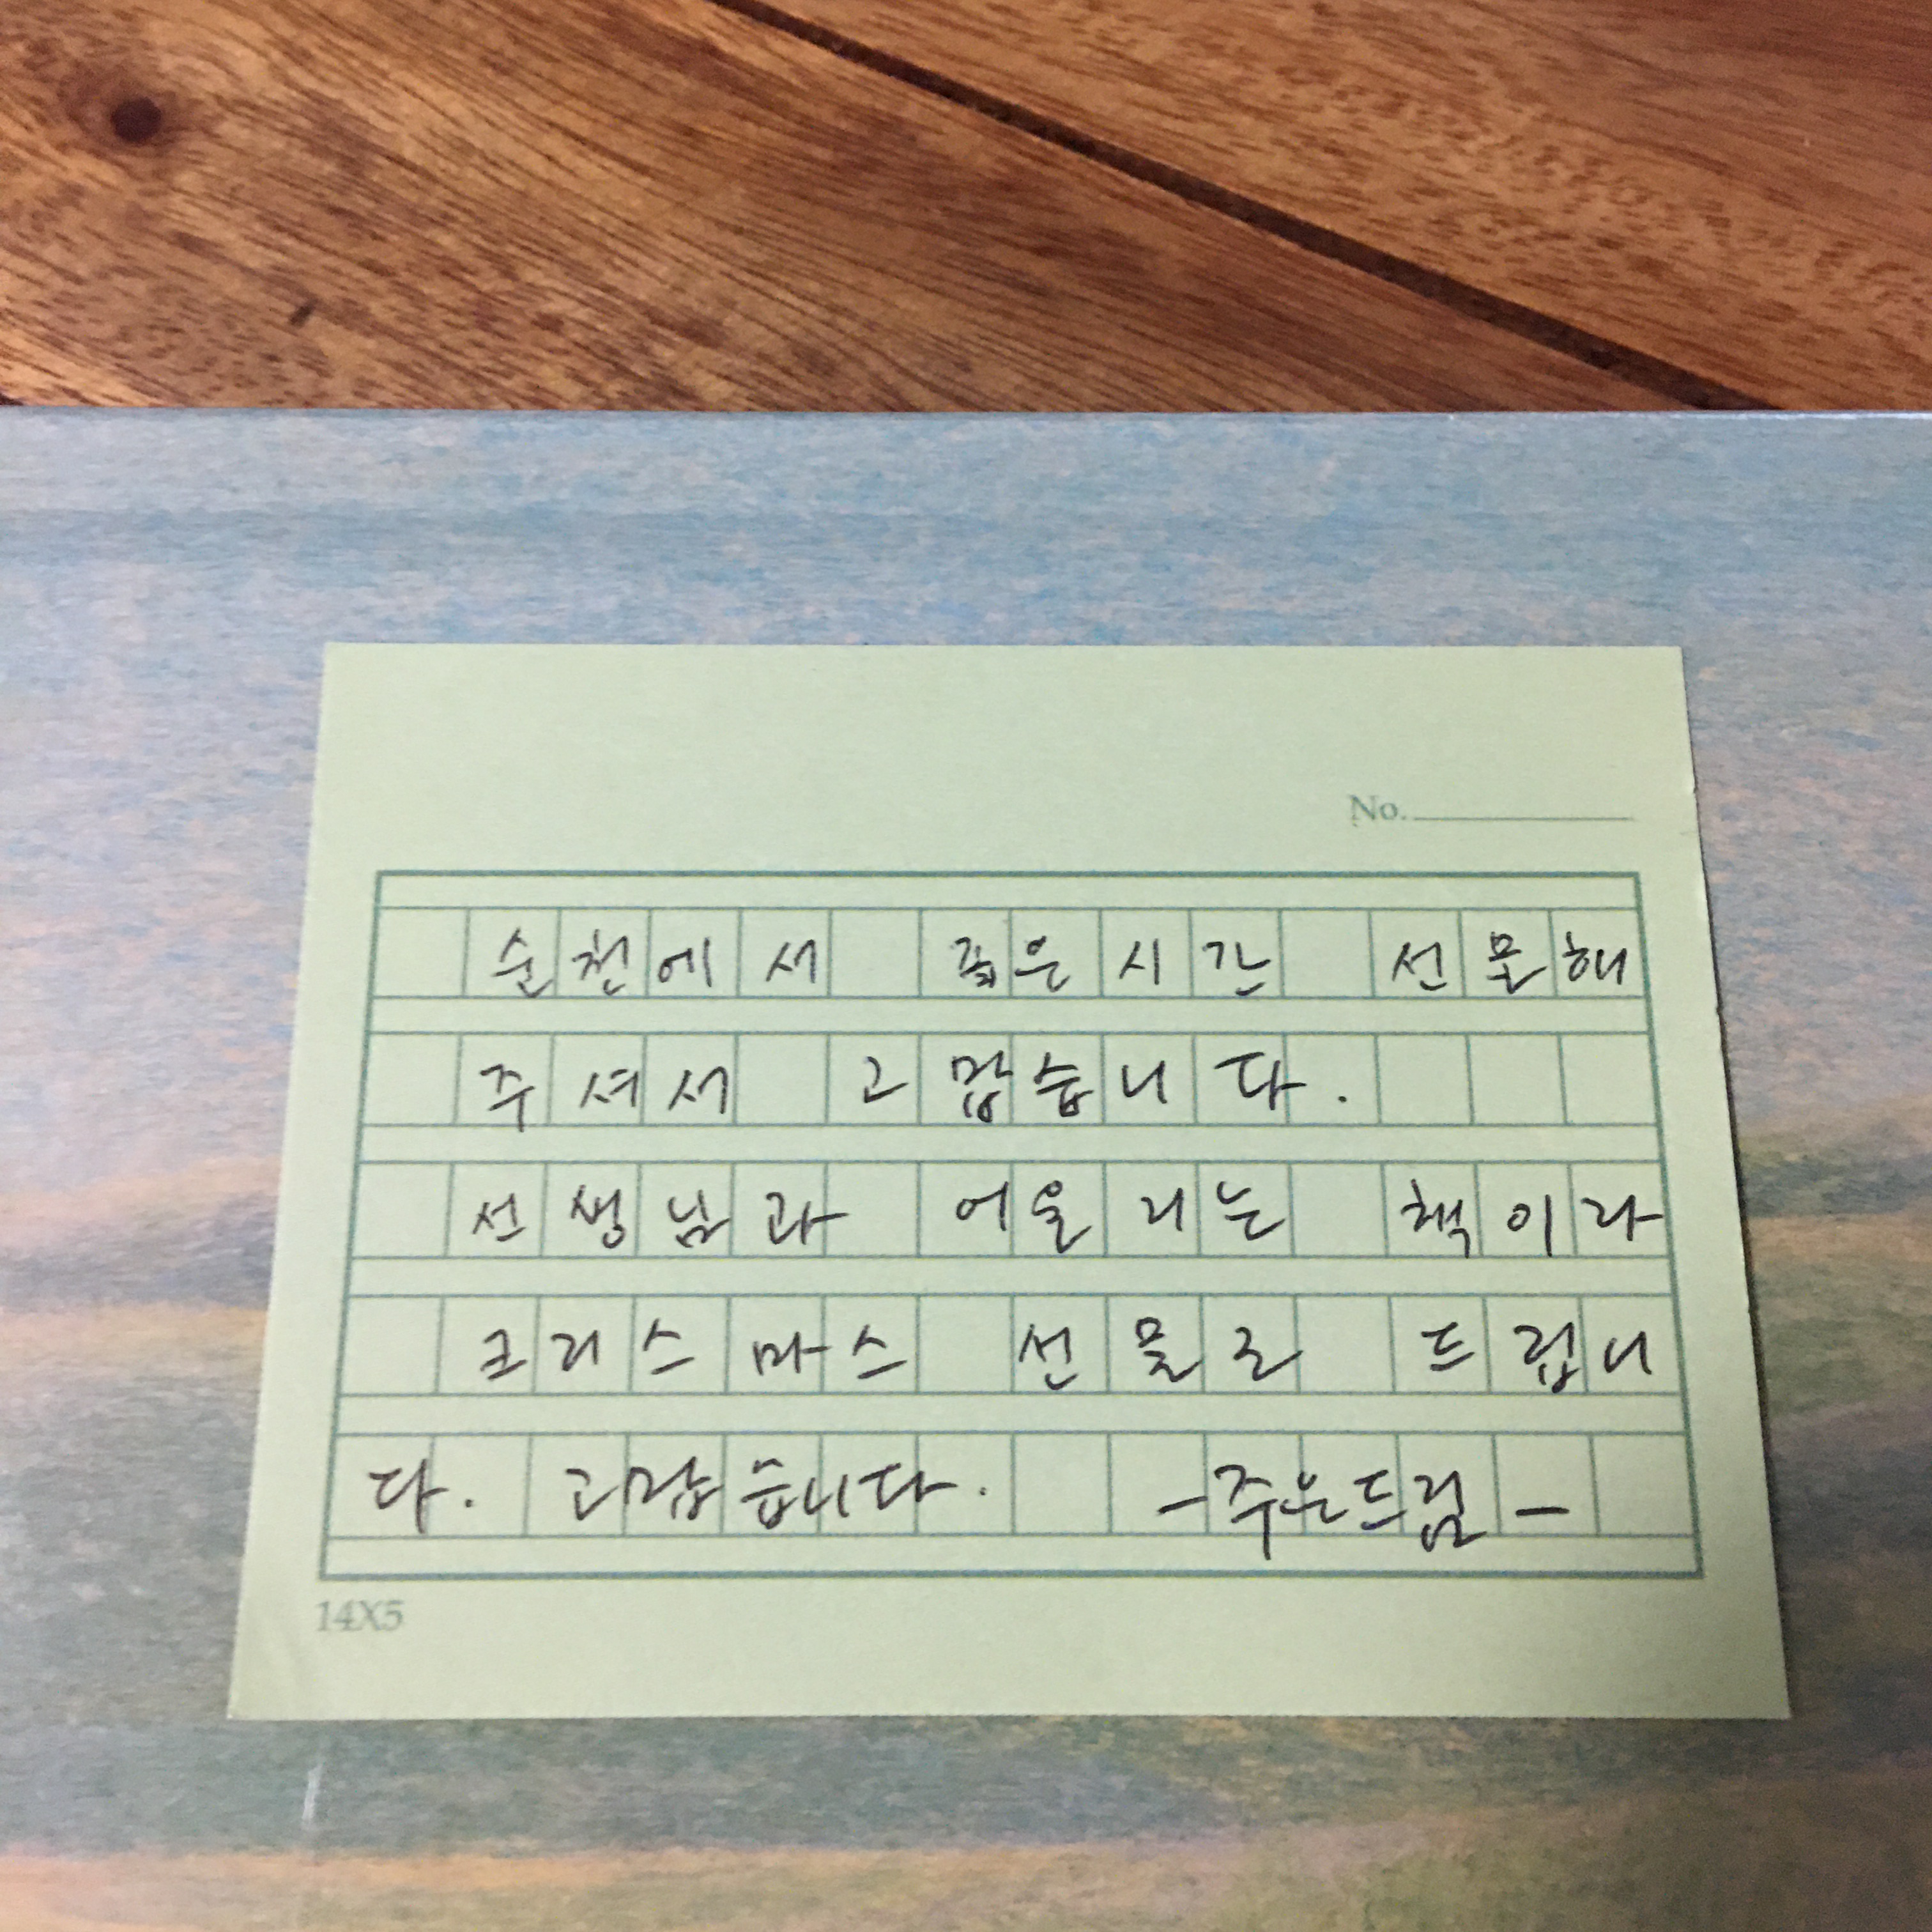 No.
순천에서 좋은 시간 선물해
주셔서 고맙습니다.
선생님과 어울리는 책이라
크리스마스 선물로 드립니
다. 고맙습니다. -주은드림-
14X5